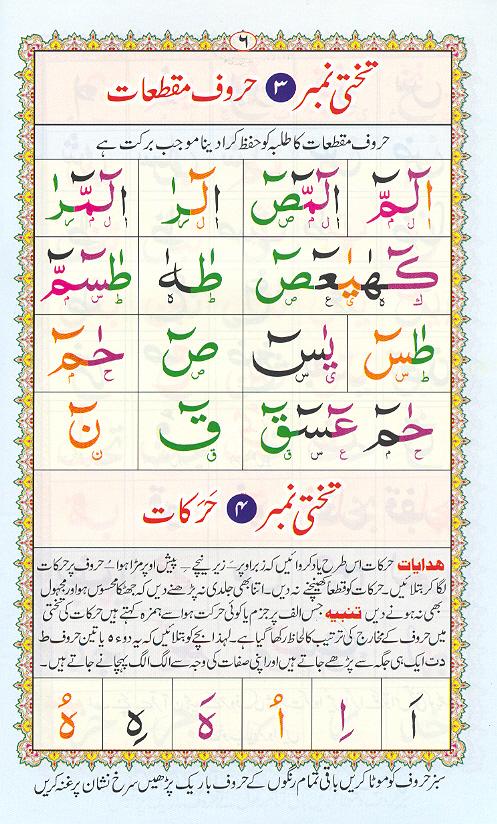 ۶
تختی نمبر ۳ حروف مقطعات
حروف مقطعات کا طلبہ کو حفظ کرا دینا موجب برکت ہے
الٓمّٓ الٓمّٓصٓ الٓرٰ الٓمّٓرٰ
ا ل م ا ل م ص ا ل ر ا ل م ر
كٓهٰيٰعٓصٓ طٰهٰ طٰسٓمّٓ
ك ه ی ع ص ط ه ط س م
طٰسٓ يٰسٓ صٓ حٰمٓ
ط س ی س ص ح م
حٰمٓ عٓسٓقٓ قٓ نٓ
ح م ع س ق ق ن
تختی نمبر ۴ حَرَکات
ھدایات حرکات اس طرح یاد کروائیں کہ زبر اوپر ـَ زیر نیچے ـِ پیش اوپر مڑا ہوا ـُ حروف پر حرکات
لگا کر بتلائیں۔ حرکات کو قطعاً کھینچنے نہ دیں۔ اتنا بھی جلدی نہ پڑھنے دیں کہ جھٹکا محسوس ہو اور مجہول
بھی نہ ہونے دیں تنبیہ جس الف پر جزم یا کوئی حرکت ہو اسے ہمزہ کہتے ہیں حرکات کی تختی
میں حروف کے مخارج کی ترتیب کا لحاظ رکھا گیا ہے۔ لہٰذا بچے کو بتلائیں کہ یہ دو ء ہ یا تین حروف ط
د ت ایک ہی جگہ سے پڑھے جاتے ہیں اور اپنی صفات کی وجہ سے الگ الگ پہچانے جاتے ہیں۔
اَ اِ اُ هَ هِ هُ
سبز حروف کو موٹا کریں باقی تمام رنگوں کے حروف باریک پڑھیں سرخ نشان پر غنہ کریں